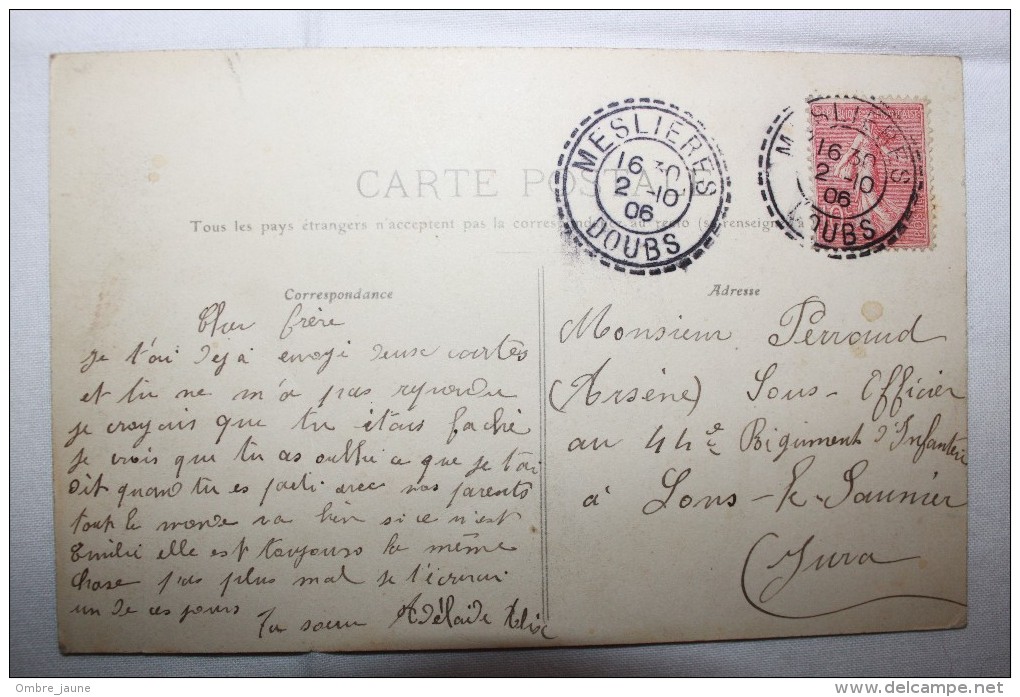 MESLIERES
16 30
2 -10
06
DOUBS
MESLIERES
16 30
2 -10
06
DOUBS
CARTE POSTALE
Tous les pays étrangers n'acceptent pas la correspondance au recto (se renseigner à la
Correspondance
Adresse
Cher frère
je t'ai deja envoyé deux cartes
et tu ne m'a pas repondu
je croyais que tu étais faché
je crois que tu as oublié ce que je t'ai
dit quand tu es parti avec nos parents
tout le monde va bien si ce n'est
Emilie elle est toujours la même
chose pas plus mal je t'écrirai
un de ces jours
Ta soeur Adélaide
Monsieur Perraud
(Arsène) Sous-Officier
au 44e Régiment d'Infanterie
à Lons-le-Saunier
(Jura
Ombre_jaune
www.delcampe.net